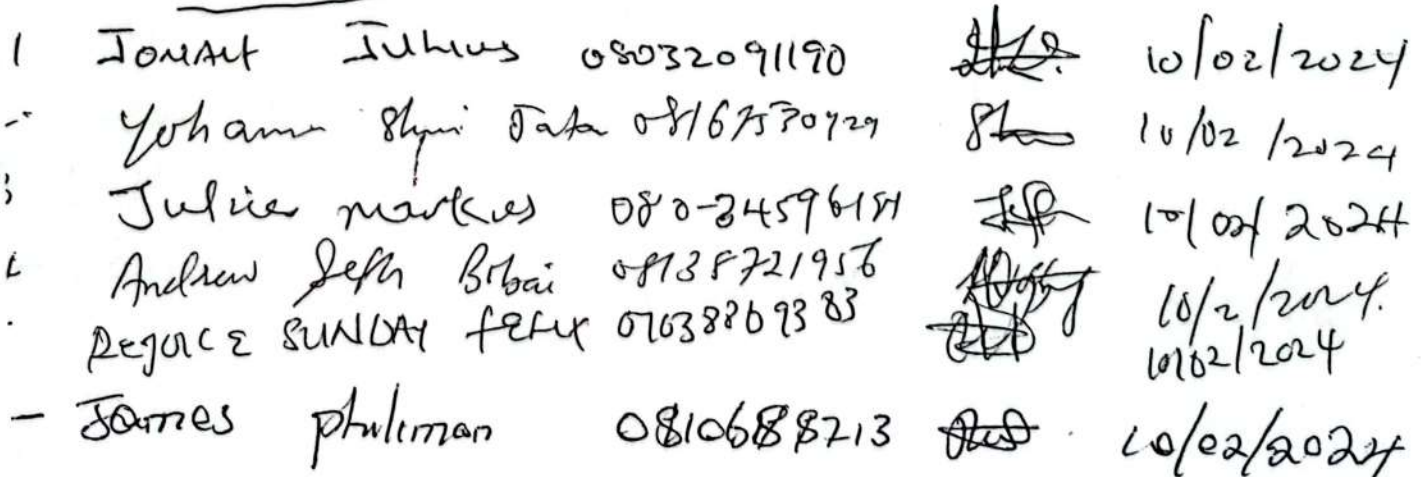 1 JONAH Julius 08032091190 10/02/2024
Yohanna 10/02/2024
Julius markus 10/02/2024
Andrew Seth Bobai 08138721956 10/2/2024.
REJOICE SUNDAY FELIX 07038869383 10/02/2024
- James philimon 0810688213 10/02/2024